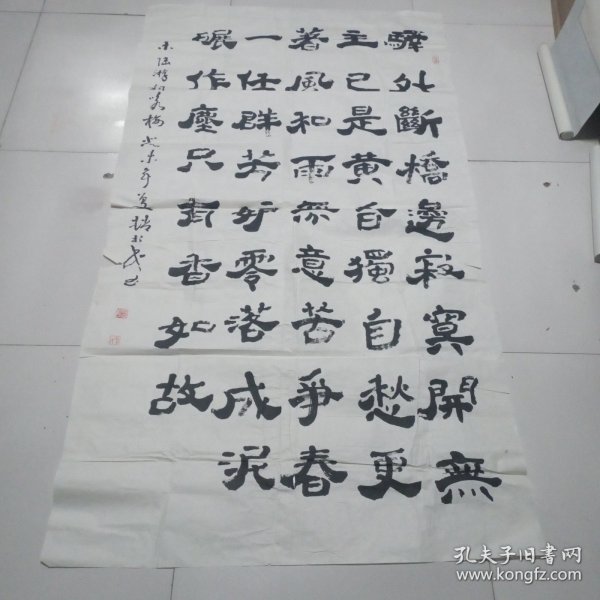 驛外斷橋邊寂寞開無
主已是黃昏獨自愁更
著風和雨無意苦爭春
一任群芳妒零落成泥
碾作塵只有香如故
宋陸游詞咏梅
孔夫子旧書网
www.kongfz.com